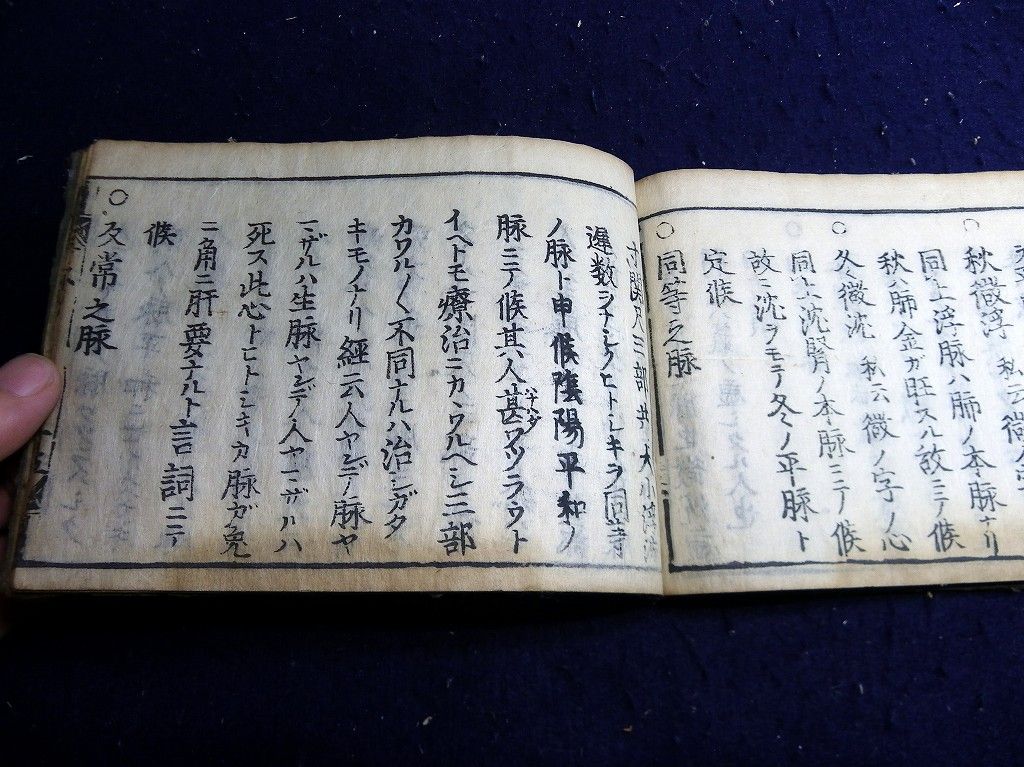 秋微浮 私云微ノ字
同上浮脉ハ肺ノ本脉ナリ
秋ハ肺金ガ旺スル故ニ〆候
冬微沈 私云微ノ字ノ心
同上沈腎ノ本脉ニ〆候
故ニ沈ヲモテ冬ノ平脉ト
定候
同等之脉
寸関尺三部并大小浮沈
遅数シナシクヒトシキヲ同等
ノ脉ト申候陰陽平和ノ
脉ニテ候其人甚ワツラウト
イヘトモ療治ニカヽワルヘシ三部
カワル〱不同ナルハ治シガタ
キモノナリ経云人ヤンデ脉ヤ
マザルハ生脉ヤンデ人ヤマザルハ
死ス此心トヒトシキカ脉ガ兔
ニ角ニ肝要ナルト言詞ニテ
候
反常之脉